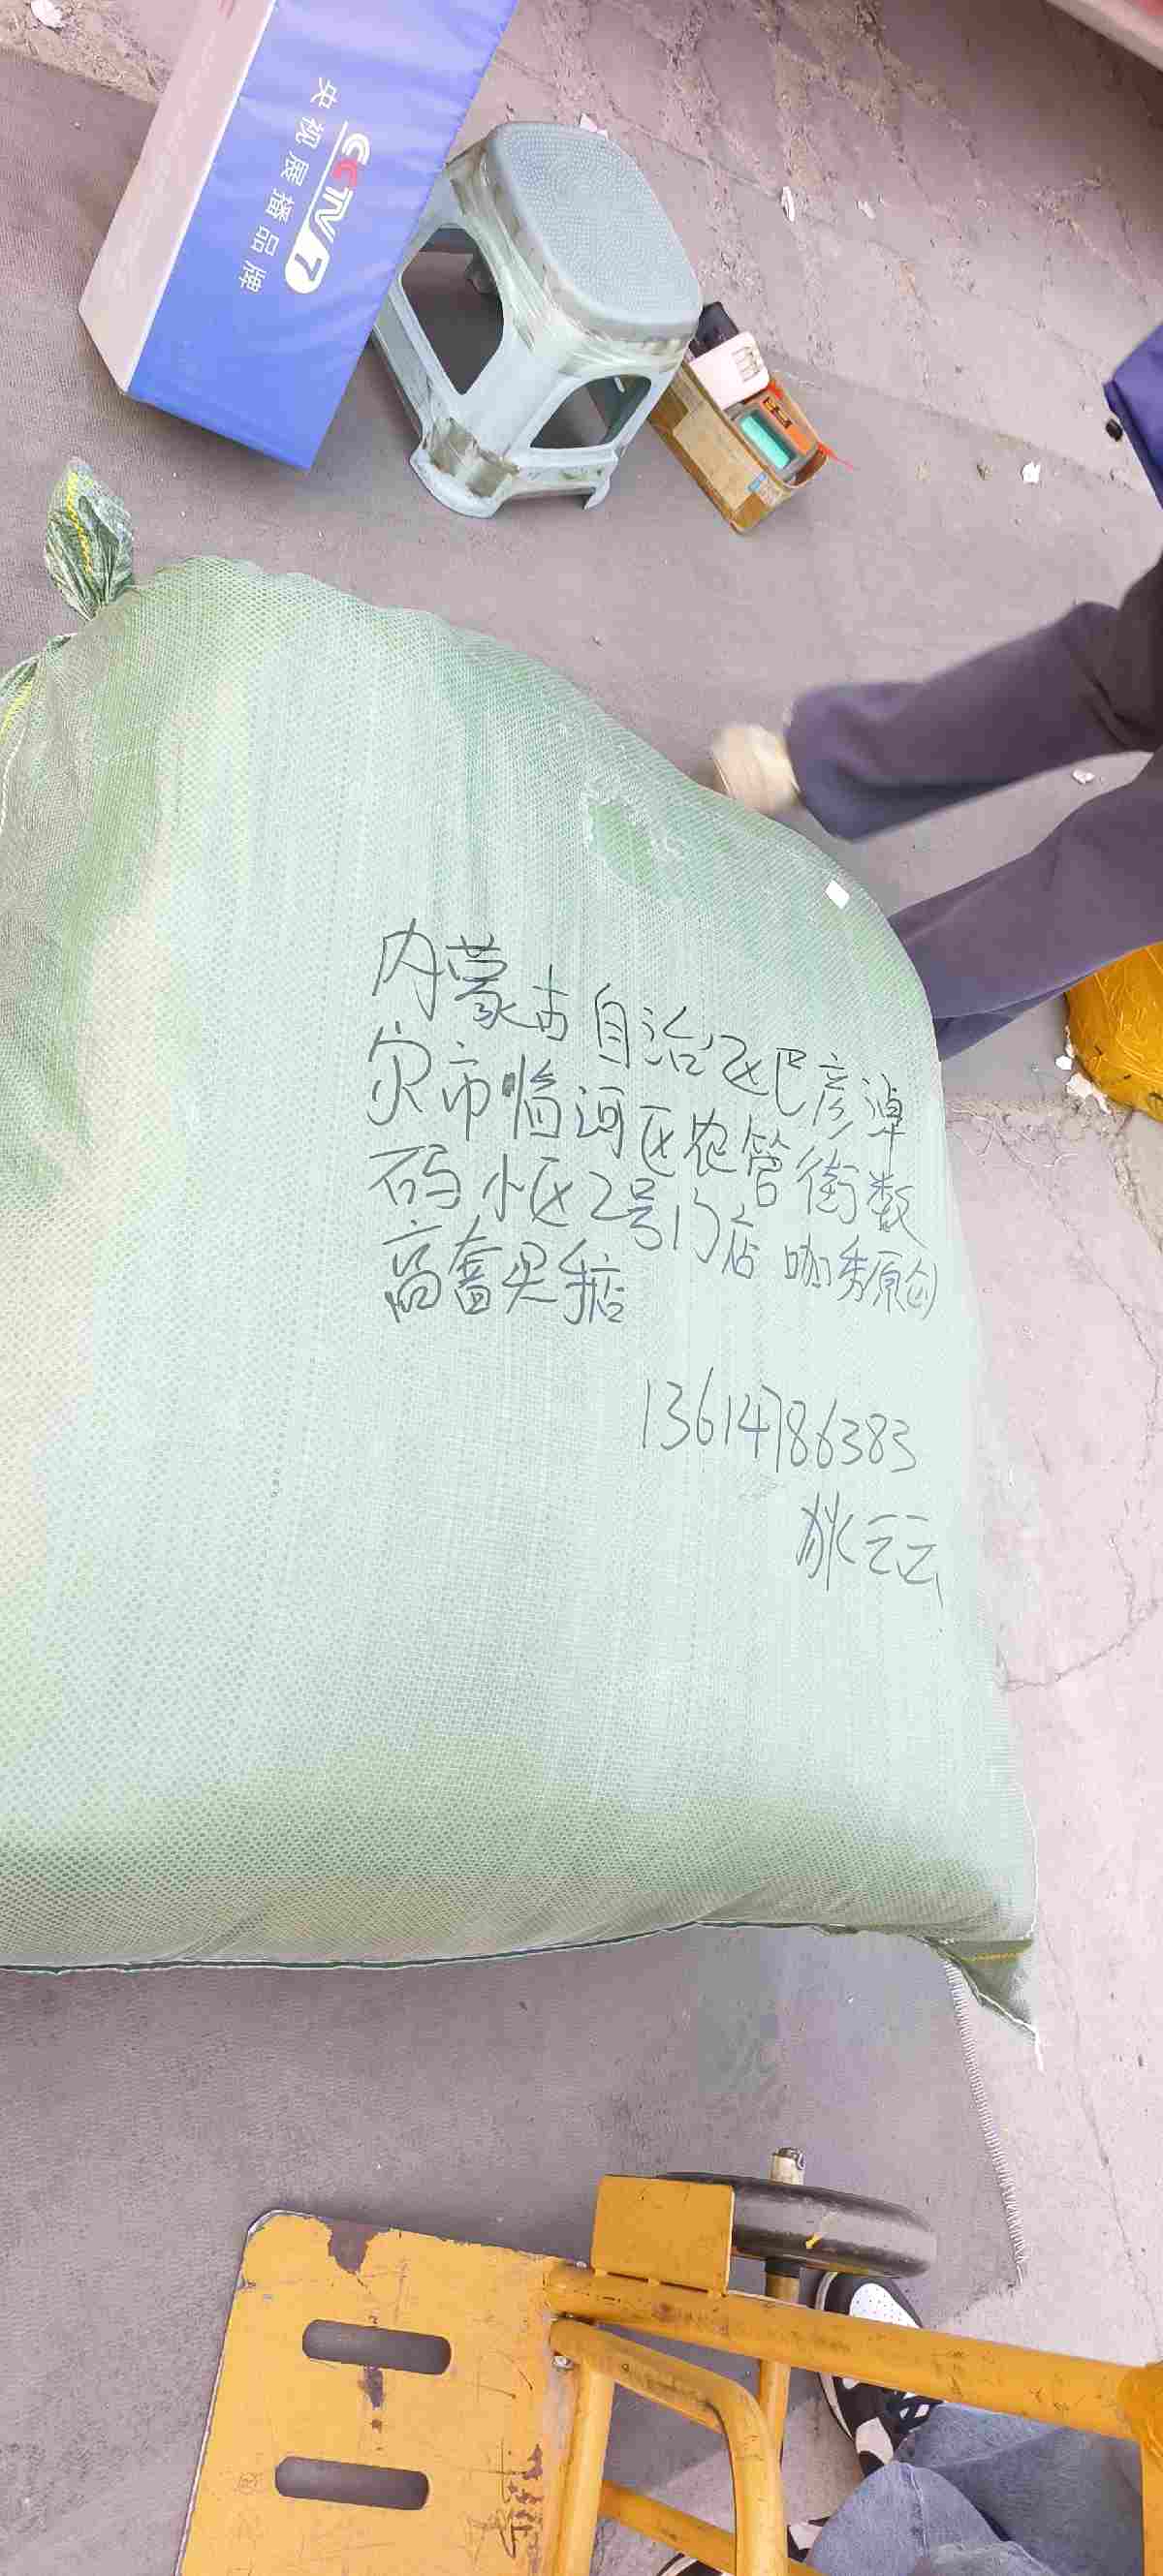 CCTV 7
央视展播品牌
内蒙古自治区巴彦淖
尔市临河区农管街数
码小区2号门店 咖秀原创
高奢买手店
13614786383
狄云云